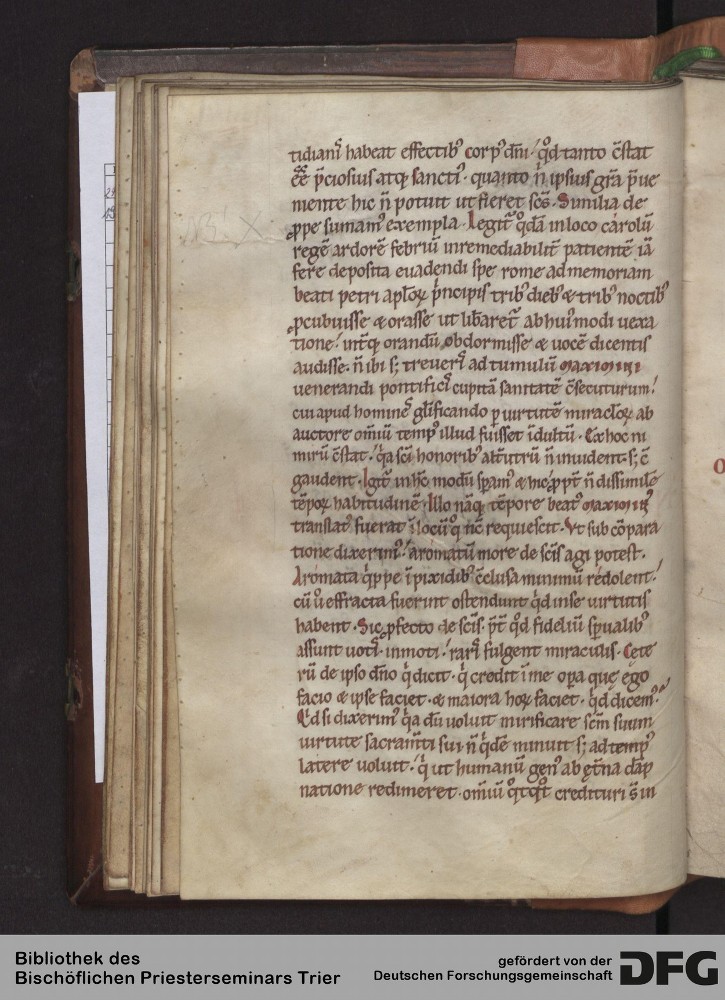 tidianꝰ habeat effectibꝰ corpꝰ dñi. qd tanto c̄stat
ēē p̄ciosius atq; sanctiꝰ. quanto n̄ ipsius gr̄a p̄ue
niente hic n̄ potuit ut fieret scs̄. Similia de
ꝓpe sumamꝰ exempla. Legit᷒ qdā in loco carolū
regē ardorē febriū inremediabilit᷒ patientē iā
fere deposita euadendi spe rome ad memoriam
beati petri apl̄oꝝ p̄ncipis tribꝰ diebꝰ & tribꝰ noctibꝰ
ꝓcubuisse & orasse ut lib̄aret᷒ ab huiꝰmodi uexa
tione. int᷒q; orandū obdormisse & uocē dicentis
audisse. n̄ ibi s; treueri ad tumulū maximini
uenerandi pontificis cupitā sanitatē c̄secuturum.
cui apud hominēs gl̄ificando p uirtutē miracl̄oꝝ ab
auctore om̄iū tempꝰ illud fuisset īdultū. Ex hoc ni
mirū c̄stat. qa sc̄i honoribꝰ alt᷒utrū n̄ inuident. s; c̄
gaudent. Igit᷒ in hc̄ modū sp̄amꝰ & hic ꝓpt᷒ n̄ dissimilē
tēpoꝝ habitudinē. Illo nāq; tēpore beatꝰ maximinꝰ
translatꝰ fuerat ī locū quo nc̄ requiescit. Vt sub cōpara
tione dixerimꝰ. aromatū more de sc̄is agi potest.
Aromata qppe ī pixidibꝰ c̄clusa minimū redolent.
cū u̇ effracta fuerint ostendunt qd in se uirtutis
habent. Sic ꝓfecto de sc̄is. p̄t qd fideliū sp̄ualibꝰ
assunt uotis inmoti. rariꝰ fulgent miraculis. Cete
rū de ipso dn̄o qd dicit. q credit ī me oꝑa que ego
facio & ipse faciet. & maiora hoꝝ faciet. qd dicemꝰ.
Qd si dixerimꝰ qa dū uoluit mirificare scm̄ suum
uirtute sacram̄ti sui n̄ qdē minuit s; ad tempꝰ
latere uoluit. q ut humanū genꝰ ab et̄na dāp
natione redimeret. om̄iū qtqt credituri s̄ in
Bibliothek des
Bischöflichen Priesterseminars Trier
gefördert von der
Deutschen Forschungsgemeinschaft
DFG